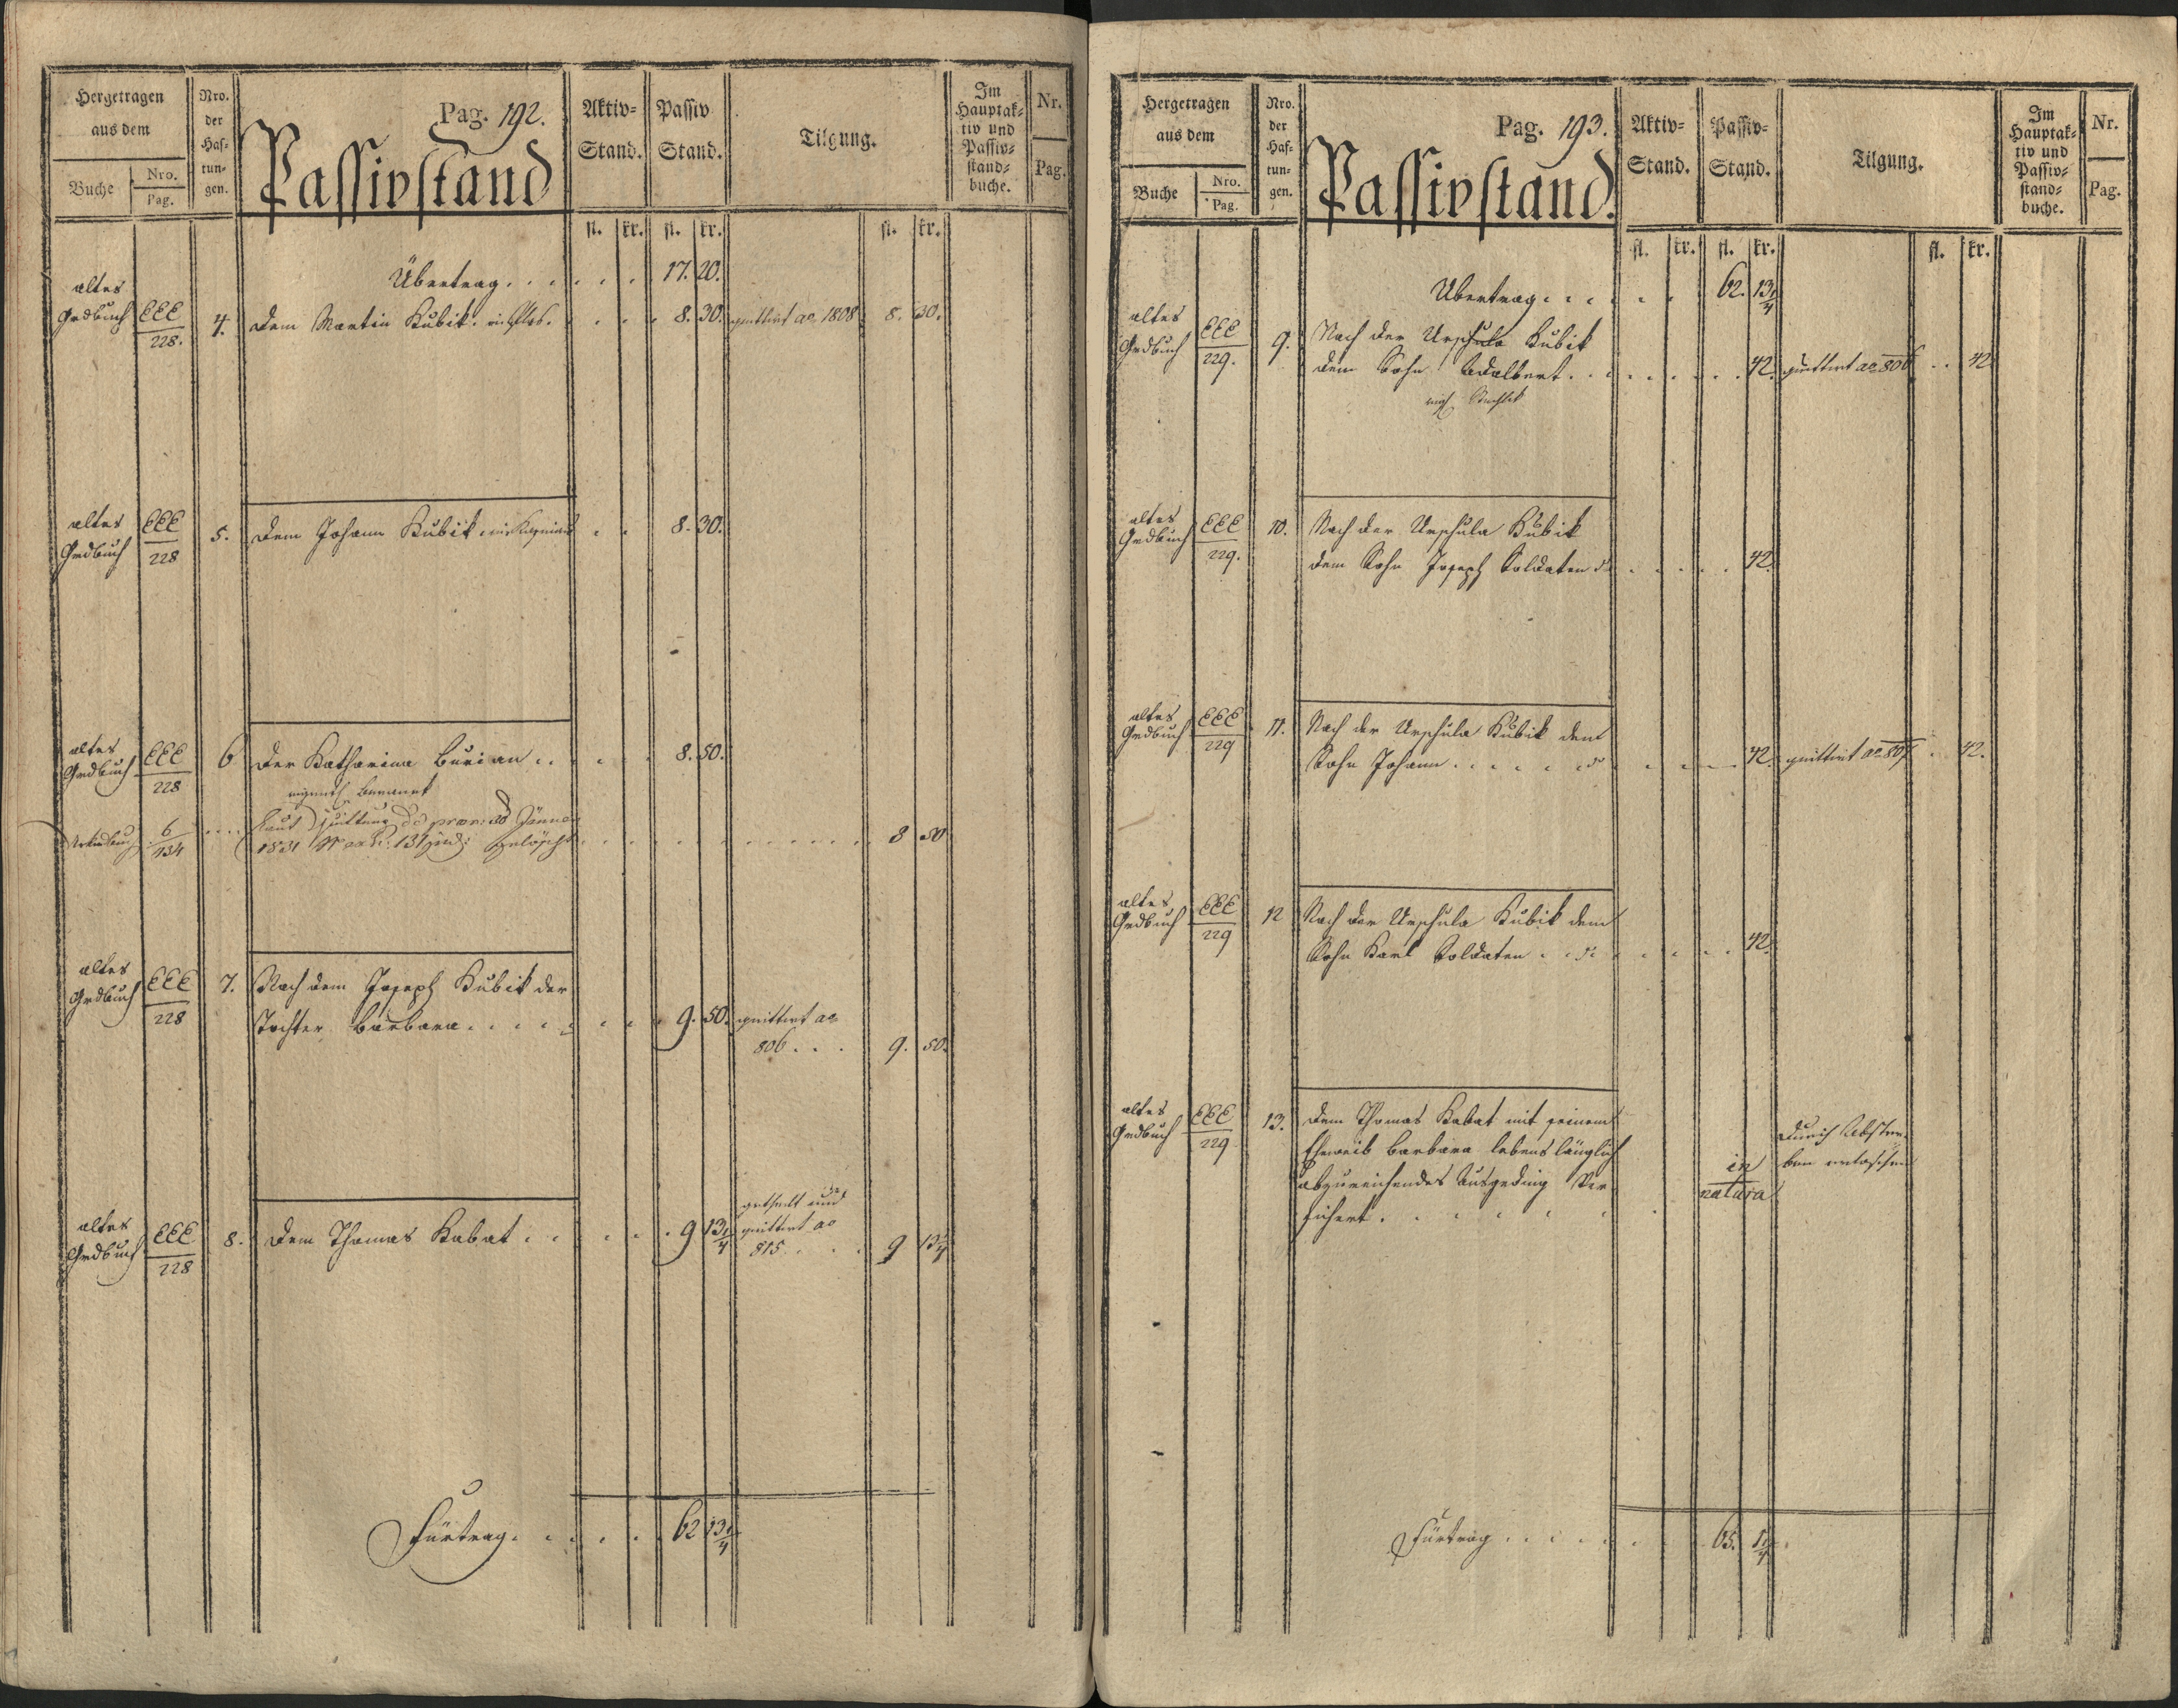 Hergetragen
aus dem
Buche
Nro.
Pag.
Nro.
der
Haf-
tun-
gen.
Pag. 192.
Passivstand
Aktiv-
Stand.
Passiv
Stand.
Tilgung.
Im
Hauptak-
tiv und
Passiv-
stand-
buche.
Nr.
Pag.
fl. kr. fl. kr. fl. kr.
Übertrag . . . . . . 17. 20.
altes
Grdbuch EEE 228. 4. Dem Martin Kubik . . . 8. 30. quittirt ao 1808 8. 30.
altes
Grdbuch EEE 228 5. Dem Johann Kubik . . 8. 30.
altes
Grdbuch EEE 228 6 Der Katharina Burian . . . . . 8. 50.
eigentl
6 134 . . . . Laut Quittung dd Jänner
1831 131 gelöscht . . . . . . . 8 50
altes
Grdbuch EEE 228 7. Nach dem Joseph Kubik der
Tochter Barbara . . . . . . . . 9. 50. quittirt ao
806 . . . 9. 50.
altes
Grdbuch EEE 228 8. Dem Thomas Kabat . . . . . 9 13 1/4 getheilt und
quittirt ao
815 . . . . 9 13 1/4
Fürtrag . . . . . . 62 13 1/4
Hergetragen
aus dem
Buche
Nro.
Pag.
Nro.
der
Haf-
tun-
gen.
Pag. 193.
Passivstand.
Aktiv-
Stand.
Passiv-
Stand.
Tilgung.
Im
Hauptak-
tiv und
Passiv-
stand-
buche.
Nr.
Pag.
fl. kr. fl. kr. fl. kr.
Übertrag . . . . . . 62. 13 1/4
altes
Grdbuch EEE 229. 9. Nach der Urschula Kubik
dem Sohn Adalbert . . . . . . . 42. quittirt ao 806 . . 42
altes
Grdbuch EEE 229. 10. Nach der Urschula Kubik
dem Sohn Joseph Soldaten . . . . . 42.
altes
Grdbuch EEE 229 11. Nach der Urschula Kubik dem
Sohn Johann . . . . . . . . . 42. quittirt ao 807 . 42.
altes
Grdbuch EEE 229 12 Nach der Urschula Kubik dem
Sohn Karl Soldaten . . . . . . . 42.
altes
Grdbuch EEE 229 13. Dem Thomas Kabat mit seinem
Eheweib Barbara lebenslänglich
abzureichendes Ausgeding Ver-
sichert . . . . . . in
natura
Durch Abster-
ben erloschen
Fürtrag . . . . . . 65. 1 1/4